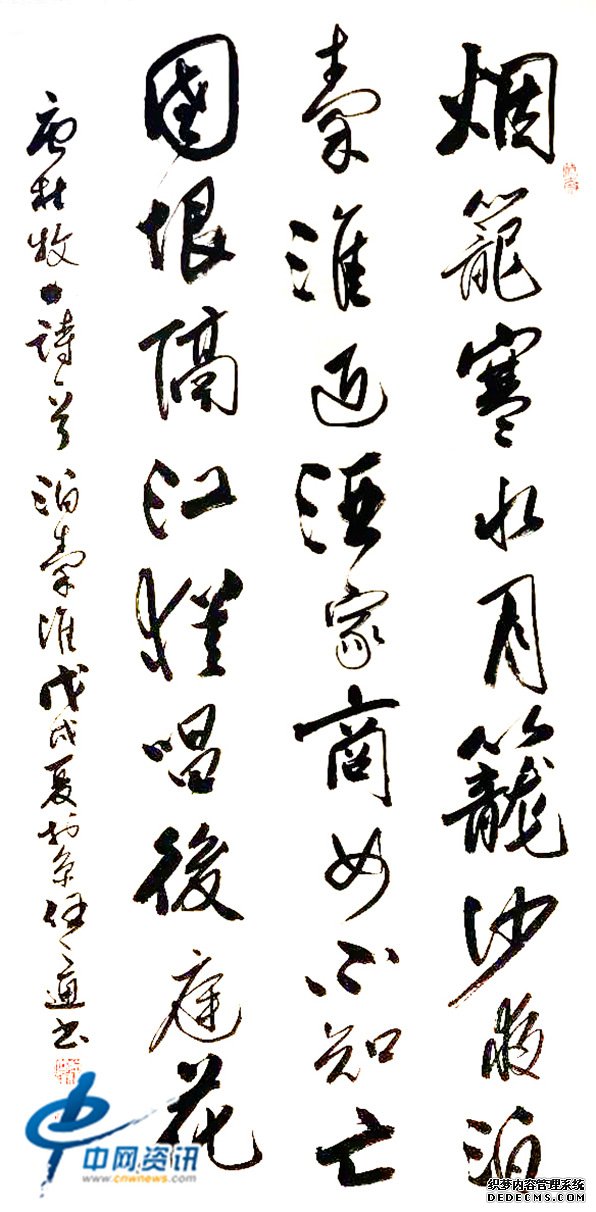 烟籠寒水月籠沙夜泊
秦淮近酒家商女不知亡
國恨隔江猶唱後庭花
唐杜牧詩一首泊秦淮戊戌夏於京任通书
中网资讯
www.cnwnews.com
织梦内容管理系统
DEDECMS.COM